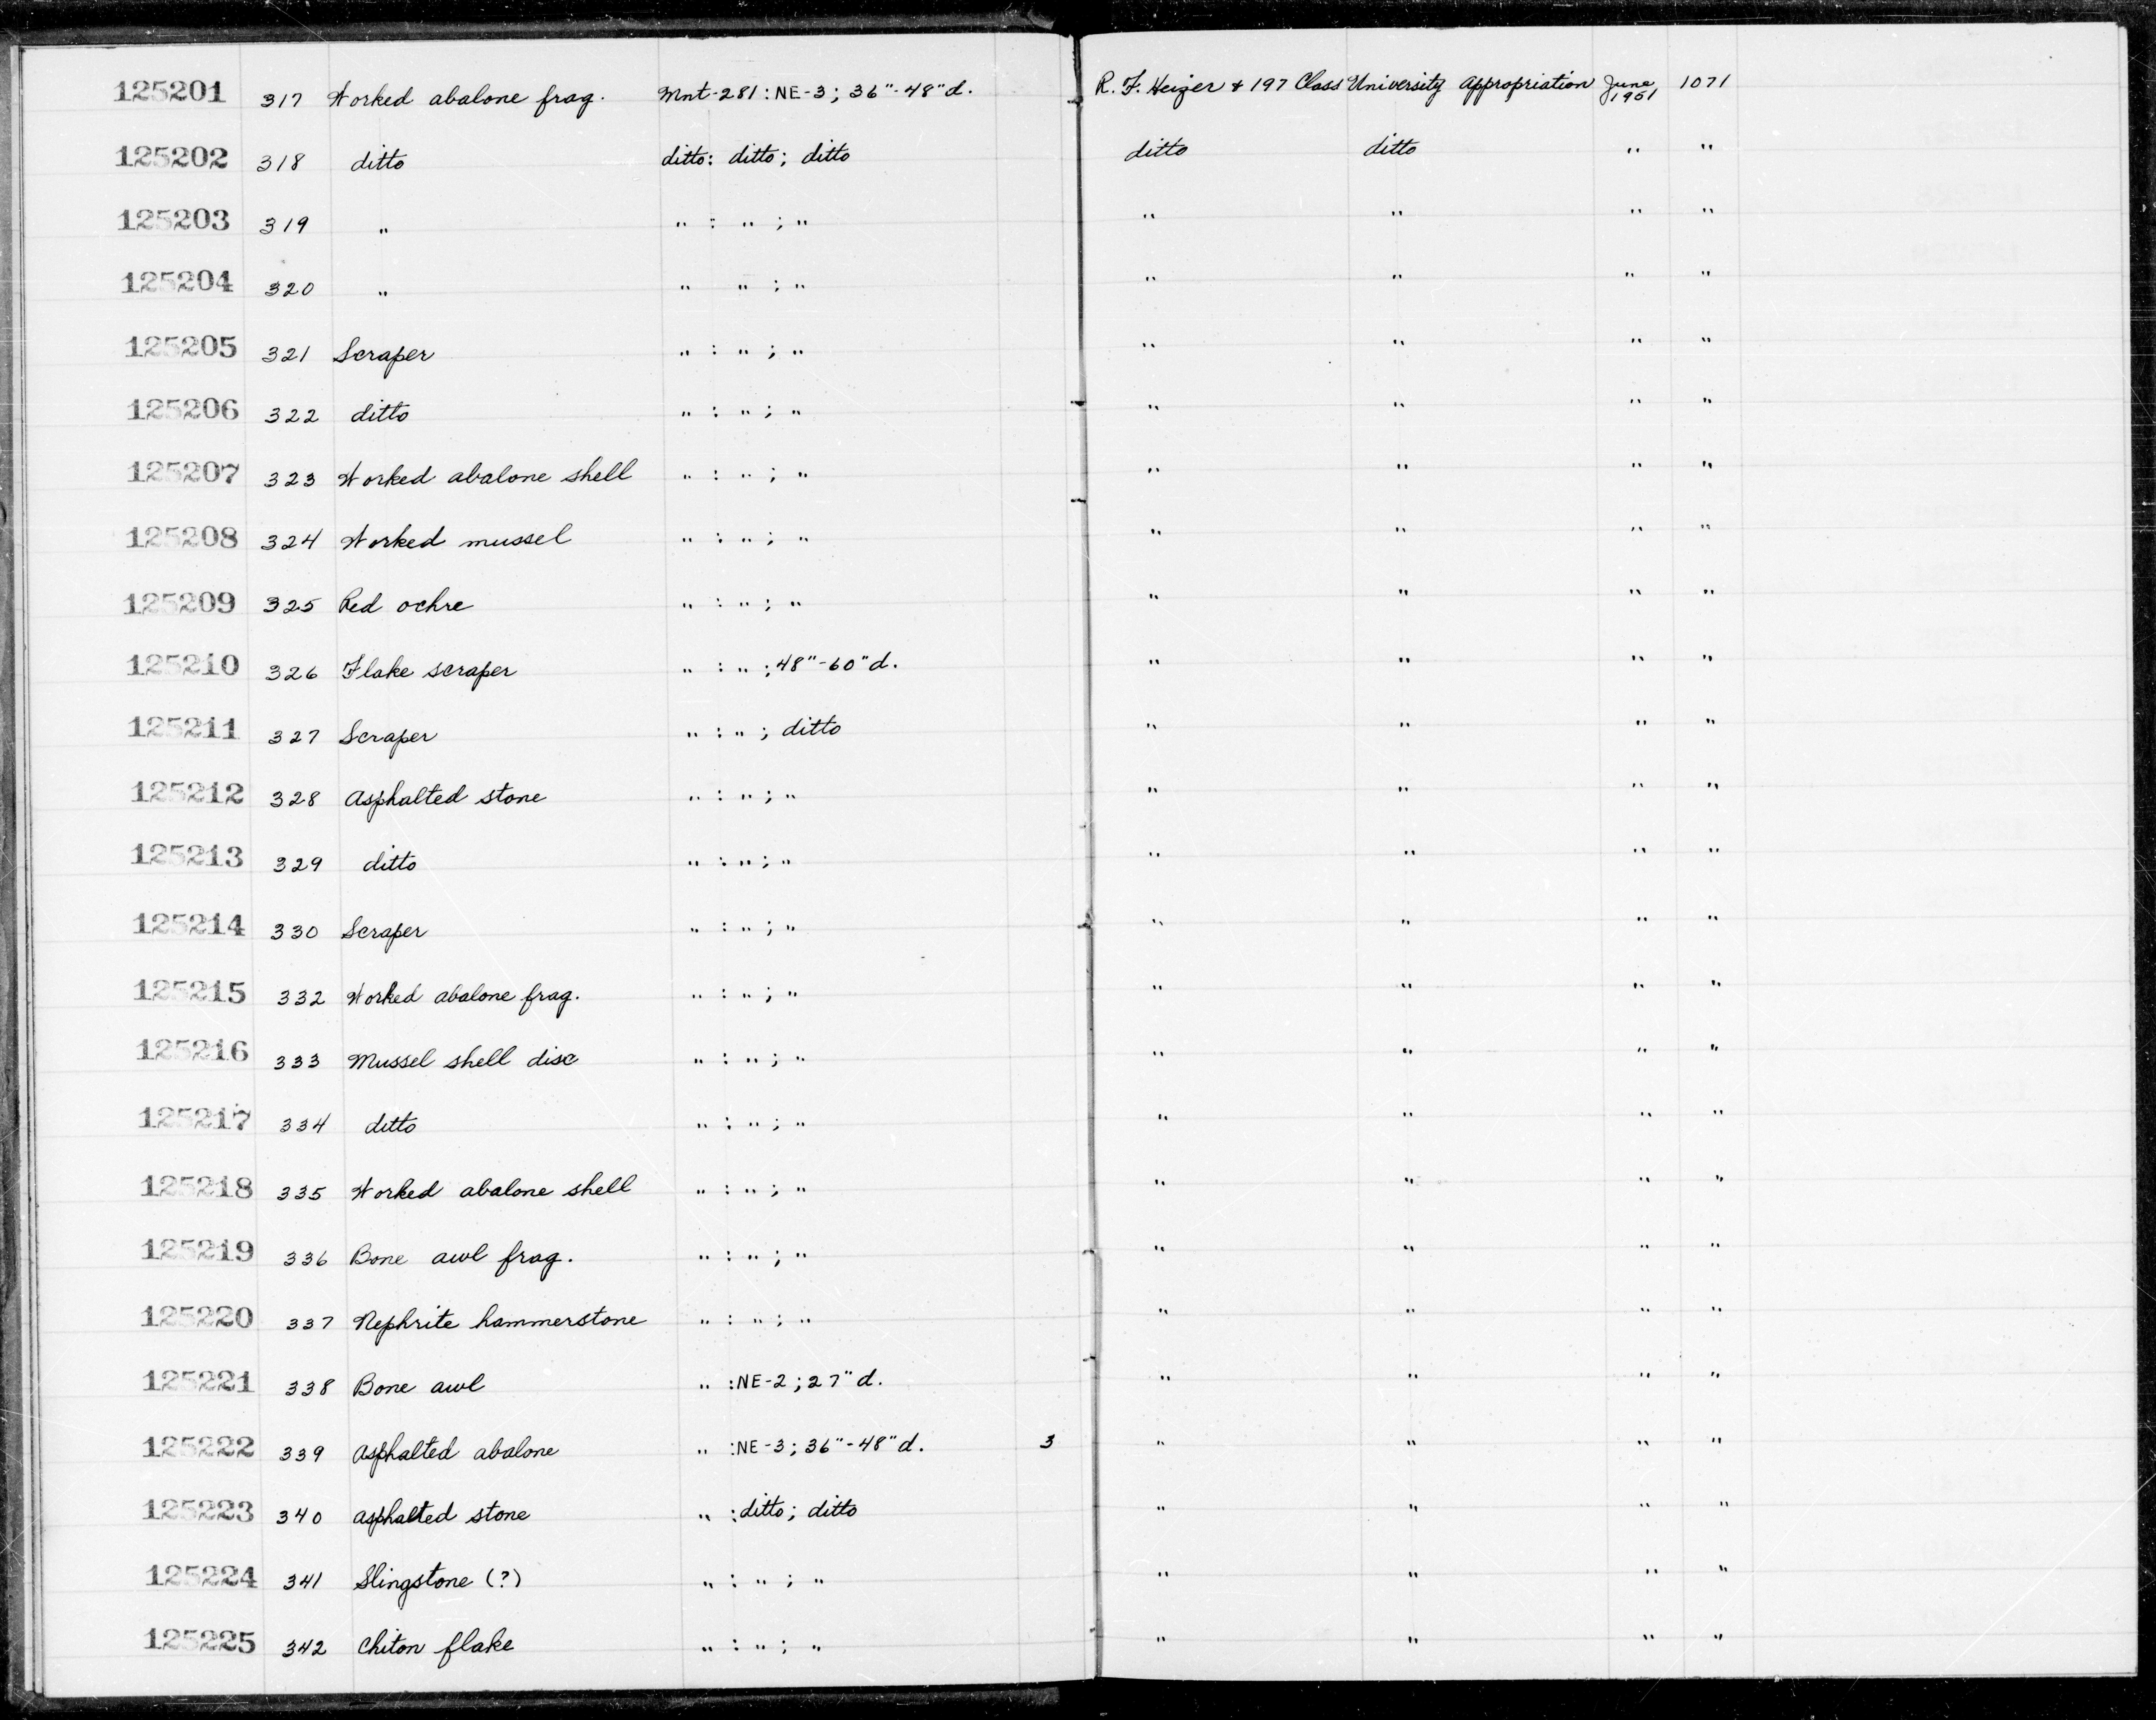 125201 317 Worked abalone frag. Mnt-281: NE-3; 36"-48"d. R. F. Heizer & 197 Class University Appropriation June 1951 1071
125202 318 ditto ditto: ditto; ditto ditto ditto " "
125203 319 " " : " ; " " " " "
125204 320 " " " ; " " " " "
125205 321 Scraper " : " ; " " " " "
125206 322 ditto " : " ; " " " " "
125207 323 Worked abalone shell " : " ; " " " " "
125208 324 Worked mussel " : " ; " " " " "
125209 325 Red ochre " : " ; " " " " "
125210 326 Flake scraper " : " ; 48"-60"d. " " " "
125211 327 Scraper " : " ; ditto " " " "
125212 328 Asphalted stone " : " ; " " " " "
125213 329 ditto " : " ; " " " " "
125214 330 Scraper " : " ; " " " " "
125215 332 Worked abalone frag. " : " ; " " " " "
125216 333 Mussel shell disc " : " ; " " " " "
125217 334 ditto " : " ; " " " " "
125218 335 Worked abalone shell " : " ; " " " " "
125219 336 Bone awl frag. " : " ; " " " " "
125220 337 Nephrite hammerstone " : " ; " " " " "
125221 338 Bone awl " :NE-2 ; 27"d. " " " "
125222 339 Asphalted abalone " :NE-3; 36"-48"d. 3 " " " "
125223 340 asphalted stone " :ditto; ditto " " " "
125224 341 Slingstone (?) " : " ; " " " " "
125225 342 Chiton flake " : " ; " " " " "